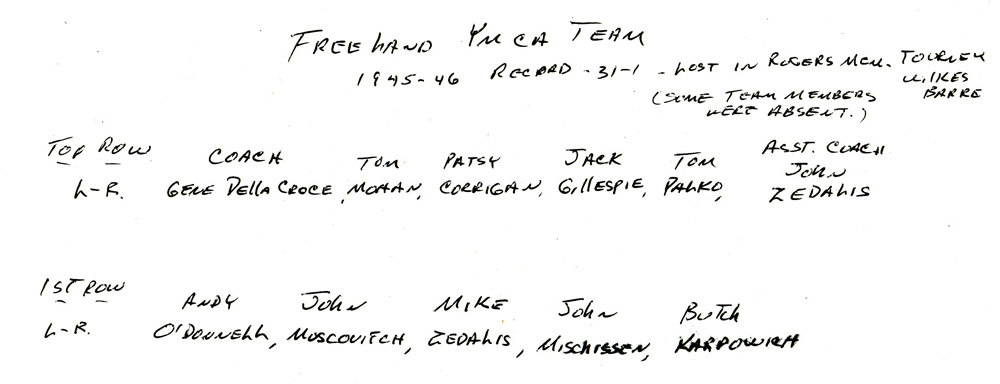 FREELAND YMCA TEAM
1945-46 RECORD - 31-1 - LOST IN ROGERS MEM. TOURNEY
WILKES
(SOME TEAM MEMBERS BARRE
WERE ABSENT.)
TOP ROW COACH TOM PATSY JACK TOM ASST. COACH
JOHN
L-R. GENE DELLA CROCE, MOHAN, CORRIGAN, GILLESPIE, PALKO, ZEDALIS
1ST ROW ANDY JOHN MIKE JOHN BUTCH
L-R. O'DONNELL, MOSCOVITCH, ZEDALIS, MISCHISSEN, KARPOWICH